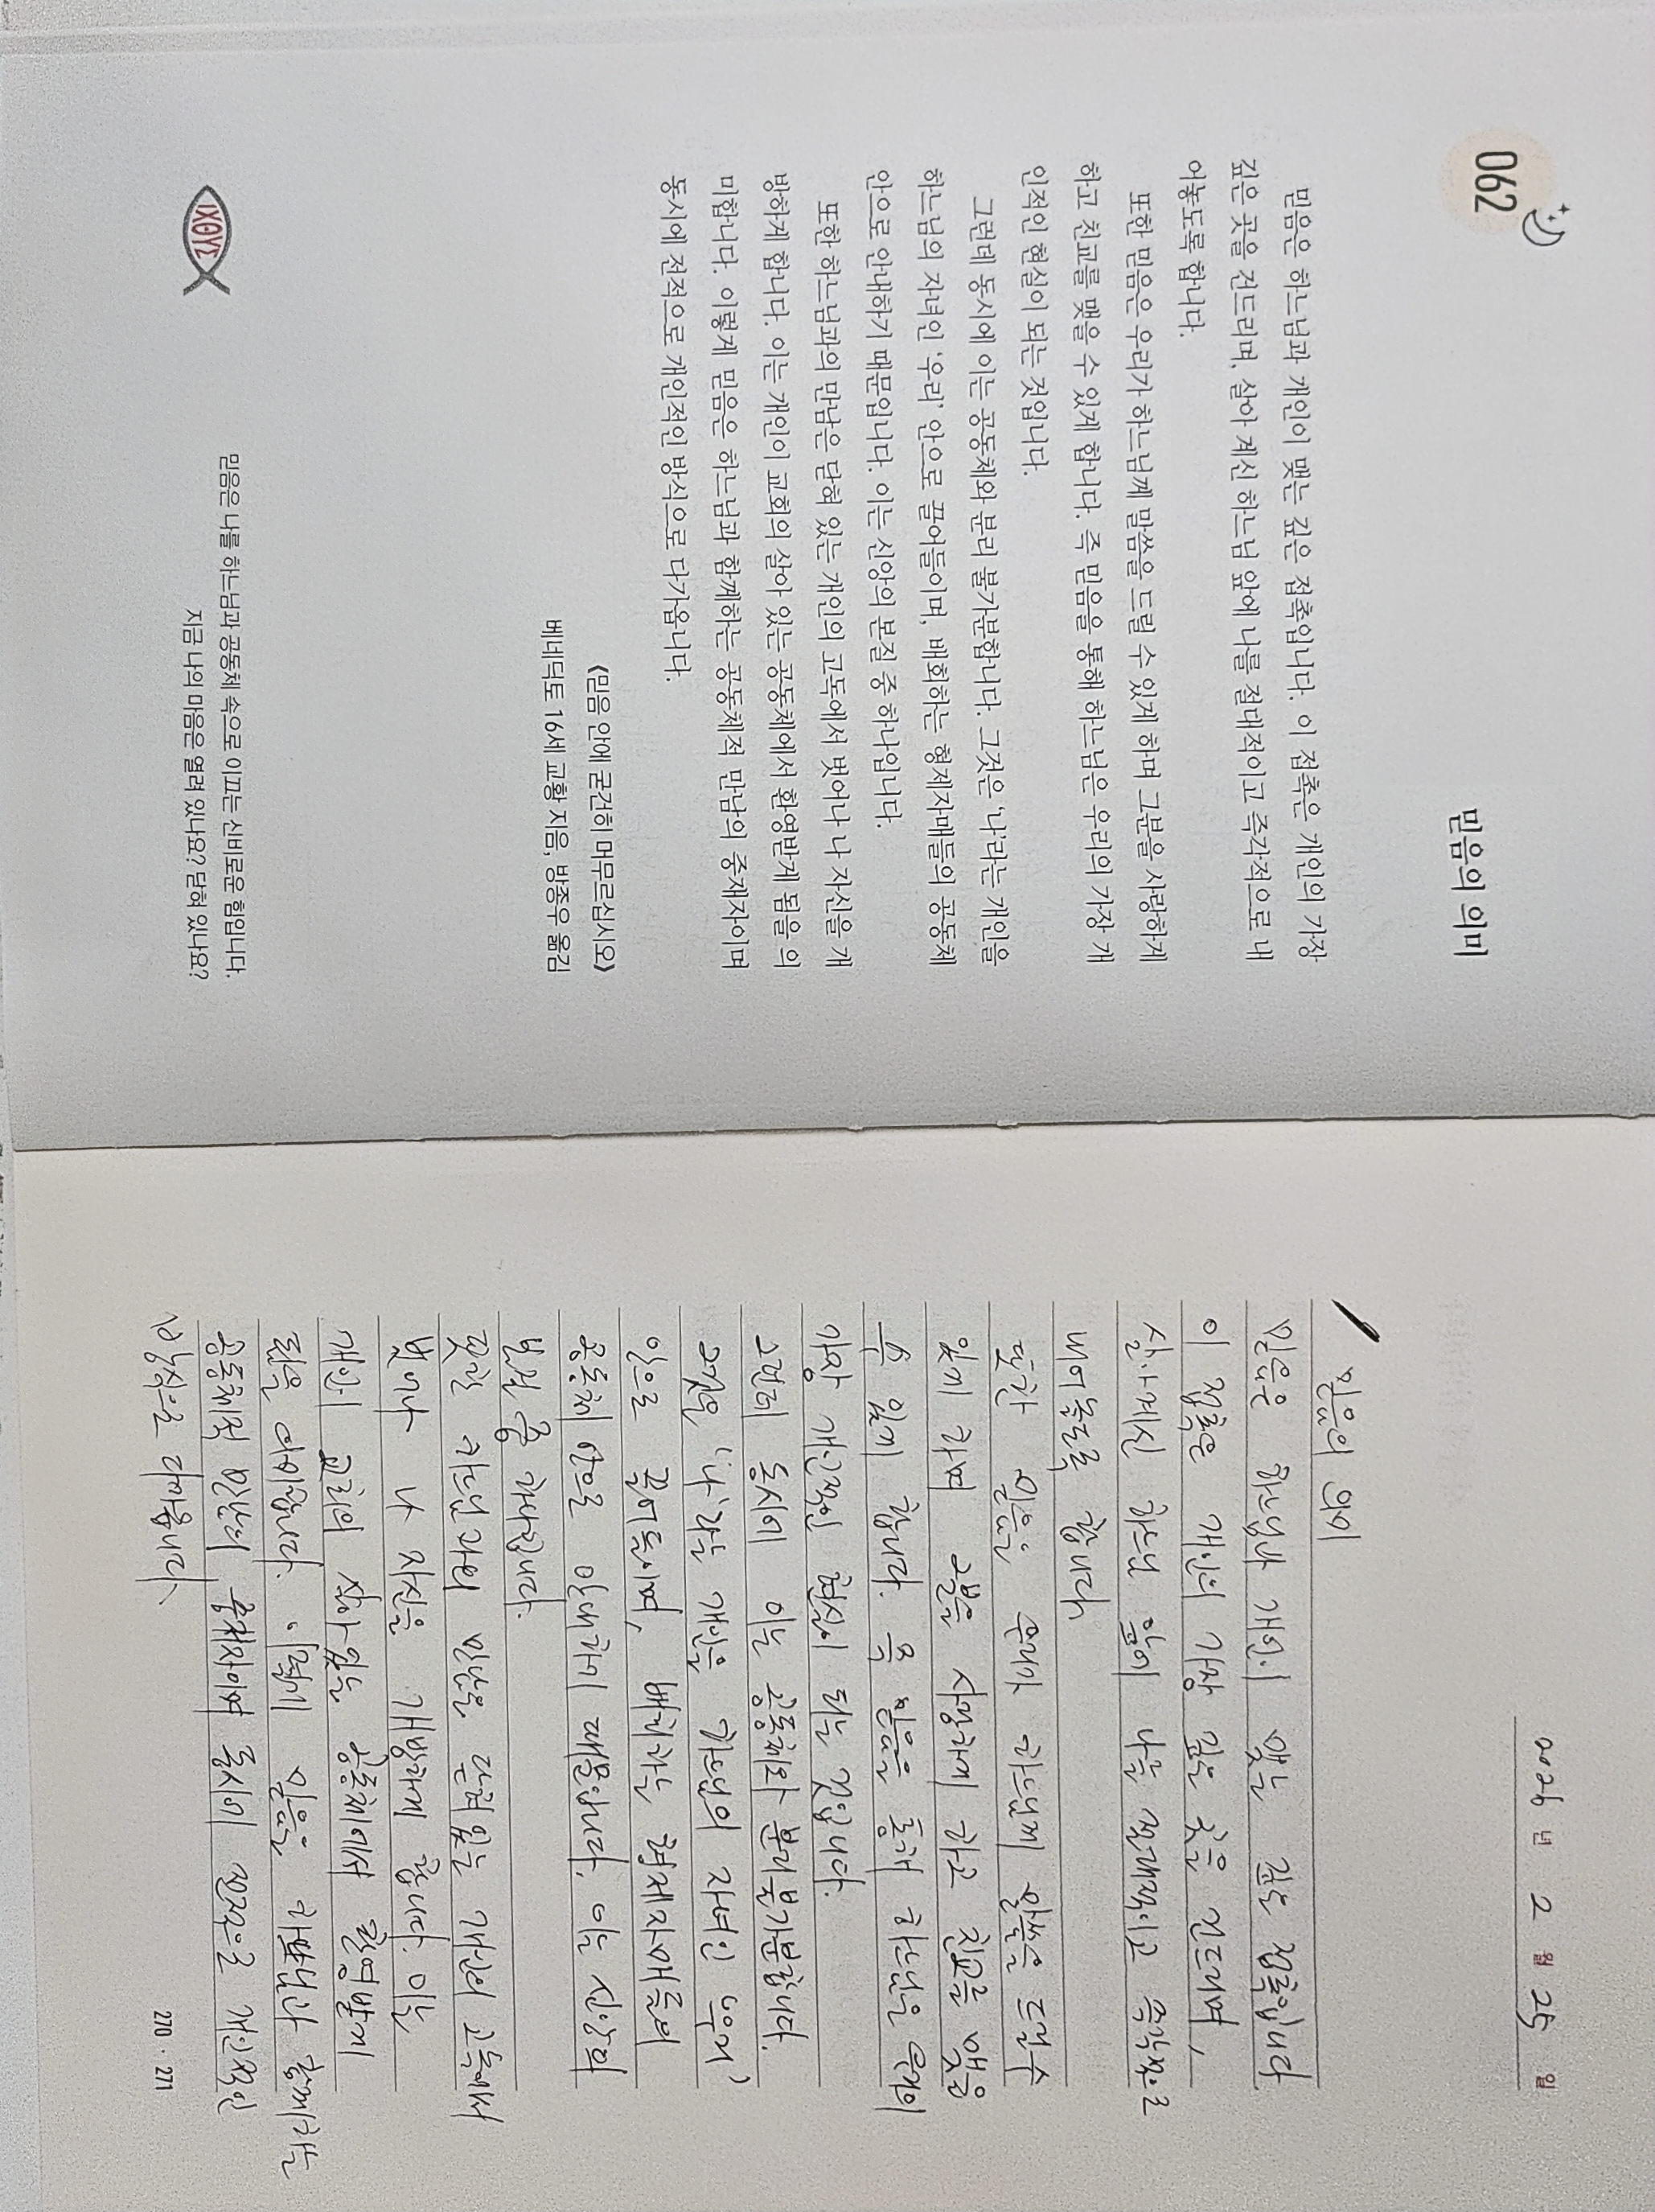 062
믿음의 의미
믿음은 하느님과 개인이 맺는 깊은 접촉입니다. 이 접촉은 개인의 가장
깊은 곳을 건드리며, 살아 계신 하느님 앞에 나를 절대적이고 즉각적으로 내
어놓도록 합니다.
또한 믿음은 우리가 하느님께 말씀을 드릴 수 있게 하며 그분을 사랑하게
하고 친교를 맺을 수 있게 합니다. 즉 믿음을 통해 하느님은 우리의 가장 개
인적인 현실이 되는 것입니다.
그런데 동시에 이는 공동체와 분리 불가분합니다. 그것은 ‘나’라는 개인을
하느님의 자녀인 ‘우리’ 안으로 끌어들이며, 배회하는 형제자매들의 공동체
안으로 안내하기 때문입니다. 이는 신앙의 본질 중 하나입니다.
또한 하느님과의 만남은 닫혀 있는 개인의 고독에서 벗어나 나 자신을 개
방하게 합니다. 이는 개인이 교회의 살아 있는 공동체에서 환영받게 됨을 의
미합니다. 이렇게 믿음은 하느님과 함께하는 공동체적 만남의 중재자이며
동시에 전적으로 개인적인 방식으로 다가옵니다.
《믿음 안에 굳건히 머무르십시오》
베네딕토 16세 교황 지음, 방종우 옮김
ΙΧΘΥΣ
믿음은 나를 하느님과 공동체 속으로 이끄는 신비로운 힘입니다.
지금 나의 마음은 열려 있나요? 닫혀 있나요?
2026 년 2 월 25 일
믿음의 의미
믿음은 하느님과 개인이 맺는 깊은 접촉입니다.
이 접촉은 개인의 가장 깊은 곳을 건드리며,
살아계신 하느님 앞에 나를 절대적이고 즉각적으로
내어놓도록 합니다.
또한 믿음은 우리가 하느님께 말씀을 드릴 수
있게 하며 그분을 사랑하게 하고 친교를 맺을
수 있게 합니다. 즉 믿음을 통해 하느님은 우리의
가장 개인적인 현실이 되는 것입니다.
그런데 동시에 이는 공동체와 분리 불가분합니다.
그것은 ‘나’라는 개인을 하느님의 자녀인 ‘우리’
안으로 끌어들이며, 배회하는 형제자매들의
공동체 안으로 안내하기 때문입니다. 이는 신앙의
본질 중 하나입니다.
또한 하느님과의 만남은 닫혀있는 개인의 고독에서
벗어나 나 자신을 개방하게 합니다. 이는
개인이 교회의 살아있는 공동체에서 환영받게
됨을 의미합니다. 이렇게 믿음은 하느님과 함께하는
공동체적 만남의 중재자이며 동시에 전적으로 개인적인
방식으로 다가옵니다.
270 · 271